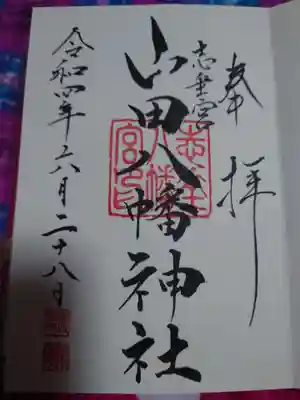 奉拝
志垂宮
山田八幡神社
令和四年六月二十八日